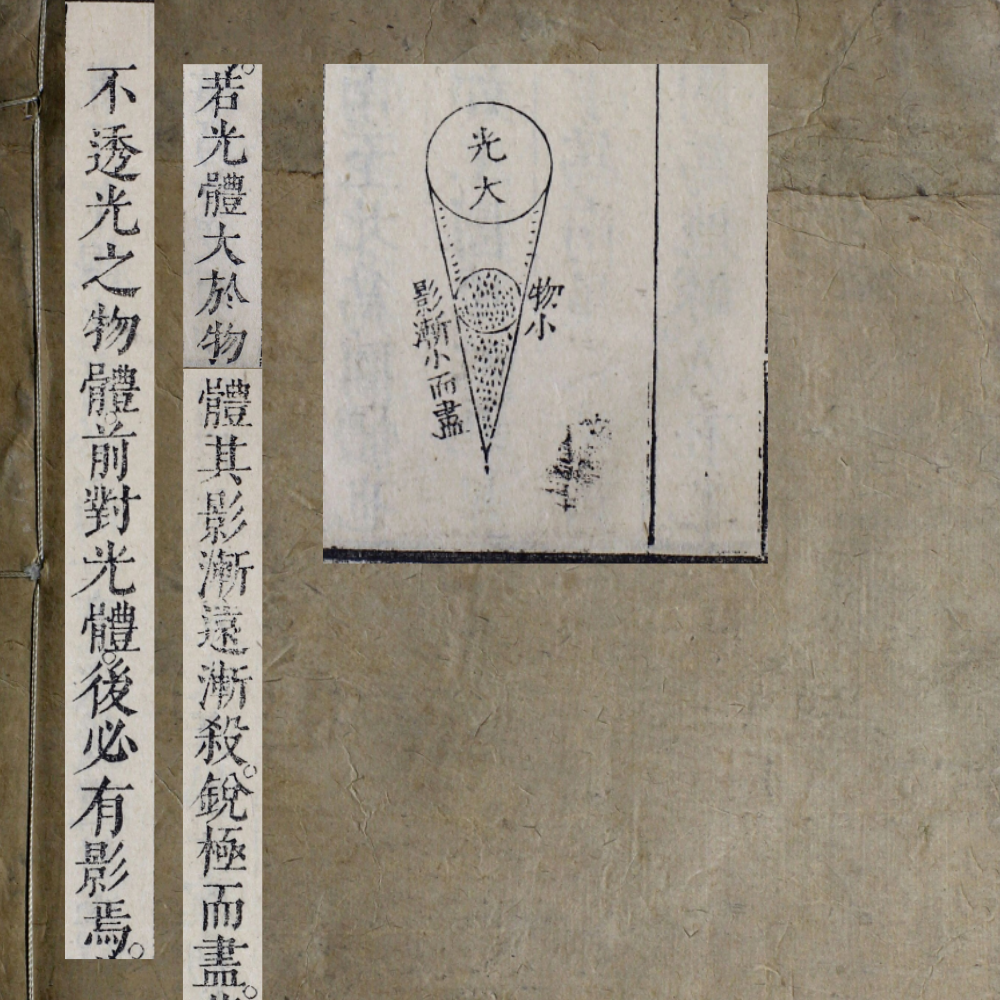 不透光之物體前對光體後必有影焉
若光體大於物
體其影漸遠漸殺銳極而盡
光大
物小
影漸小而盡